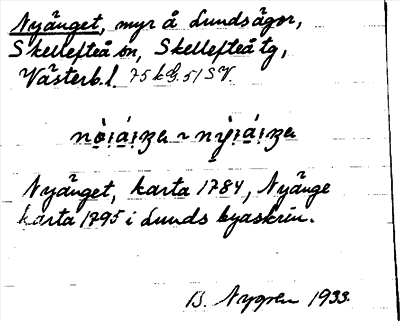 Nyänget, myr å Lundsägor,
Skellefteå sn, Skellefteå tg,
Västerb. l. 75 kf. 51 SV.
Nyänget, karta 1784, Nyänge
karta 1795 i Lunds byaskrin.
B. Nygren 1933.